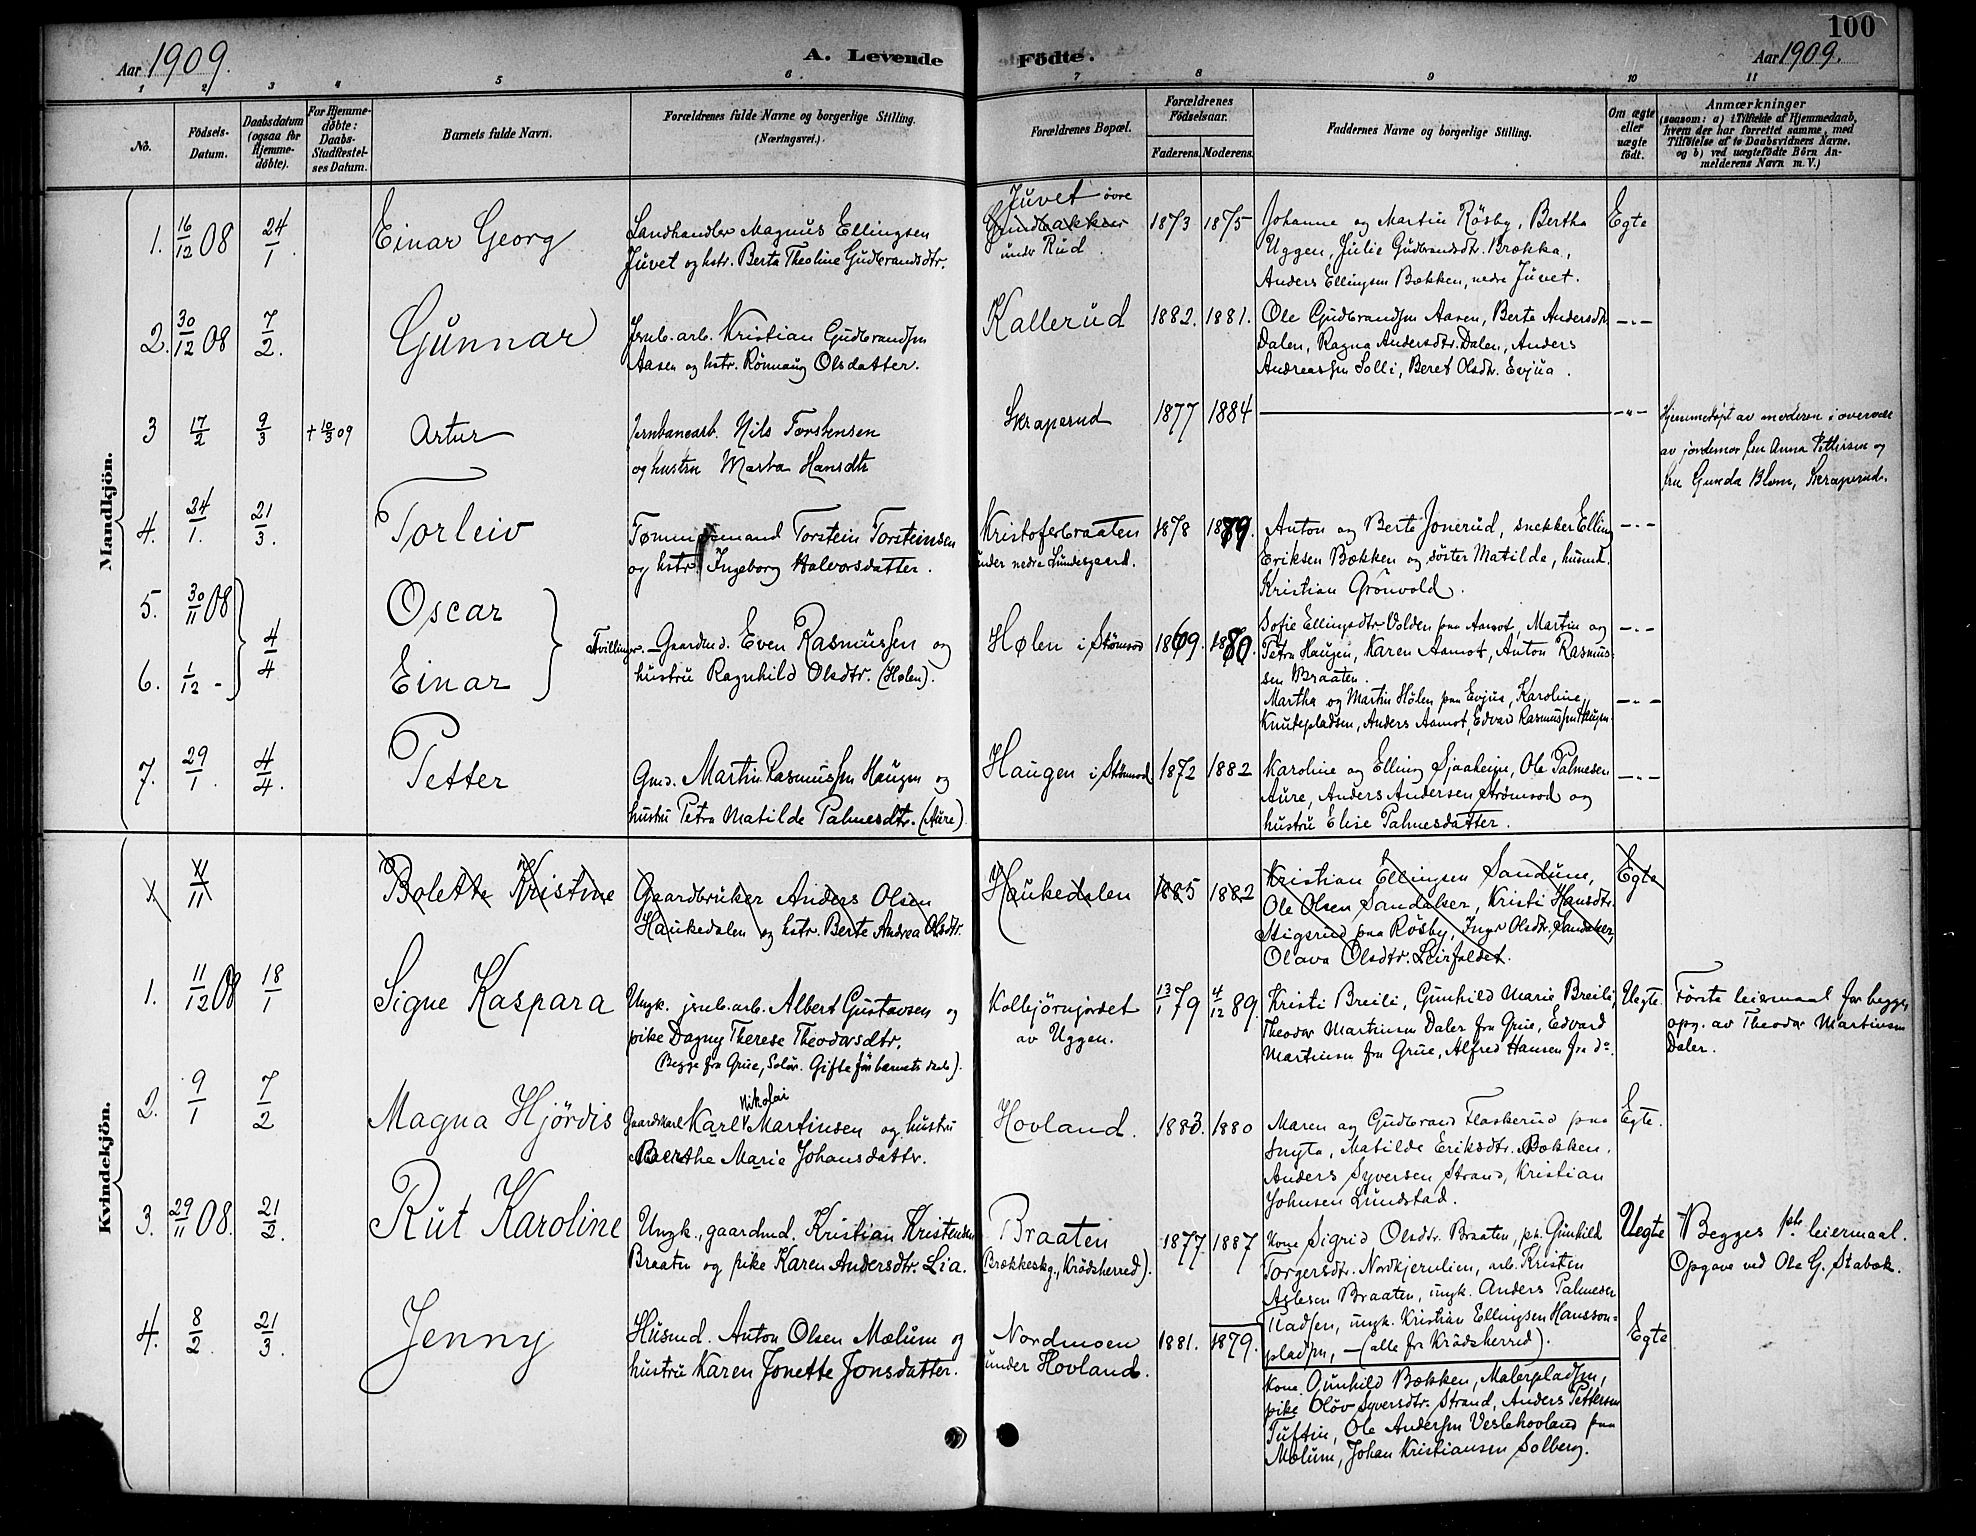 100
Aar 1909.
A. Levende Födte.
Aar 1909.
1 2 3 4 5 6 7 8 9 10 11
No.
Födsels-Datum.
Daabsdatum (ogsaa for Hjemme-döbte).
For Hjemme-döbte: Daabs-Stadfæstel-ses Datum.
Barnets fulde Navn.
Forældrenes fulde Navne og borgerlige Stilling. (Næringsvei.)
Forældrenes Bopæl.
Forældrenes Födselsaar.
Faderens. Moderens.
Faddernes Navne og borgerlige Stilling.
Om ægte eller uægte födt.
Anmærkninger
(saasom: a) i Tilfælde af Hjemmedaab,
hvem der har forrettet samme, med
Tilföielse af to Daabsvidners Navne.
og b) ved uægtefödte Börn An-
melderens Navn m. V.)
Mandkjön.
1. 16/12 08 24/1. Einar Georg
Landhandler Magnus Ellingsen
Juvet og hstr. Berta Theoline Gudbrandsdtr.
Juvet övre
Grindbakken
under Rud.
1873 1875
Johanne og Martin Rösby, Bertha
Uggen, Julie Gudbrandsdtr. Brækka,
Anders Ellingsen Bækken, nedre Juvet.
Egte
2. 30/12 08 7/2. Gunnar
Jrnb. arb. Kristian Gudbrandsen
Aasen og hstr. Rönnaug Olsdatter.
Kallerud
1882. 1881.
Ole Gudbrandsen Aasen, Berte Andersdtr.
Dalen, Ragna Andersdtr. Dalen, Anders
Andreassen Solli, Beret Olsdtr. Evjua.
—"—
3 17/2 9/3 + 10/3 09 Artur
Jernbanearb. Nils Torstensen
og hustru Marta Hansdtr
Skraperud
1877 1884
—"—
Hjemmedöpt av moderen i overvær
av jordemor fru Anna Pettersen og
fru Gunda Blom, Skraperud.
4. 24/1. 21/3. Torleiv
Tømmermand Torstein Torsteinsen
og hstr. Ingeborg Halvorsdatter.
Kristoferbraaten
under nedre Lundesgaard.
1878 1879.
Anton og Berte Jonerud, snekker Elling
Eriksen Bækken og söster Matilde, husmd.
Kristian Grönvold.
—"—
5. 30/11 08 Oscar
6. 1/12 - 4/4 Einar
Tvillinger. — Gaardmd. Even Rasmussen og
hustru Ragnhild Olsdtr. (Hølen).
Hølen i Strømsod
1869. 1880.
Sofie Ellingsdtr Volden paa Aamot, Martin og
Petra Haugen, Karen Aamot, Anton Rasmus-
sen Braaten.
—"—
Martha og Martin Hölen paa Evjua, Karoline
Knutepladsen, Anders Aamot, Edvard Rasmussen Haugen.
—"—
7. 29/1. 4/4. Petter
Gmd. Martin Rasmussen Haugen og
hustru Petra Matilde Palmesdtr. (Aure)
Haugen i Strømsod
1872 1882
Karoline og Elling Sjaaheim, Ole Palmesen
Aure, Anders Andersen Strömsod og
hustru Elise Palmesdatter.
—"—
Kvindekjön.
Bolette Kristine
Gaardbruker Anders Olsen
Haukedalen og hstr. Berte Andrea Olsdtr.
Haukedalen
1885 1882
Kristian Ellingsen Sandum,
Ole Olsen Sandaker, Kristi Hansdtr.
Stigsrud paa Rösby, Inger Olsdtr. Sandaker,
Olava Olsdtr. Leirfaldet.
Egte
1. 11/12 08 18/1 Signe Kaspara
Ungk. jrnb. arb. Albert Gustavsen og
pike Dagny Therese Theodorsdtr.
(Begge fra Grue, Solør. Gifte før barnets daab).
Kolbjörnjordet
av Uggen.
13/1 79 4/12 89.
Kristi Breili, Gunhild Marie Breili,
Theodor Martinsen Daler fra Grue, Edvard
Martinsen fra Grue, Alfred Hansen fra do.
Uegte.
Förste leiermaal for begge,
opg. av Theodor Martinsen
Daler.
2. 9/1 7/2 Magna Hjördis
Gaardkarl Karl Nikolai Martinsen og hustru
Berthe Marie Johansdatter.
Hovland.
1883. 1880
Maren og Gudbrand Flaskerud paa
Snyta, Matilde Eriksdtr. Bækken.
Anders Syversen Strand, Kristian
Johnsen Lundstad.
Egte.
3. 29/11 08. 21/2. Rut Karoline
Ungk., gaardmd. Kristian Kristensen
Braaten og pike Karen Andersdtr. Lia.
Braaten
(Brækkeskg., Krödsherred).
1877. 1887
Kone Sigrid Olsdtr. Braaten, pk. Gunhild
Torgersdtr. Nordkjernlien, arb. Kristen
Aslesen Braaten, ungk. Anders Palmesen
Pladsen, ungk. Kristian Ellingsen Hansson-
pladsen, — (alle fra Krödsherred).
Uegte
Begges 1ste leiermaal.
Opgave ved Ole G. Stabæk.
4. 8/2. 21/3. Jenny
Husmd. Anton Olsen Mælum og
hustru Karen Jonette Jonsdatter.
Nordmoen
under Hovland.
1881. 1879.
Egte
Kone Gunhild Bækken, Malerpladsen,
pike Olöv Syversdtr. Strand, Anders Pettersen
Tuftin, Ole Andersen Veslehovland paa
Mælum, Johan Kristiansen Solberg.